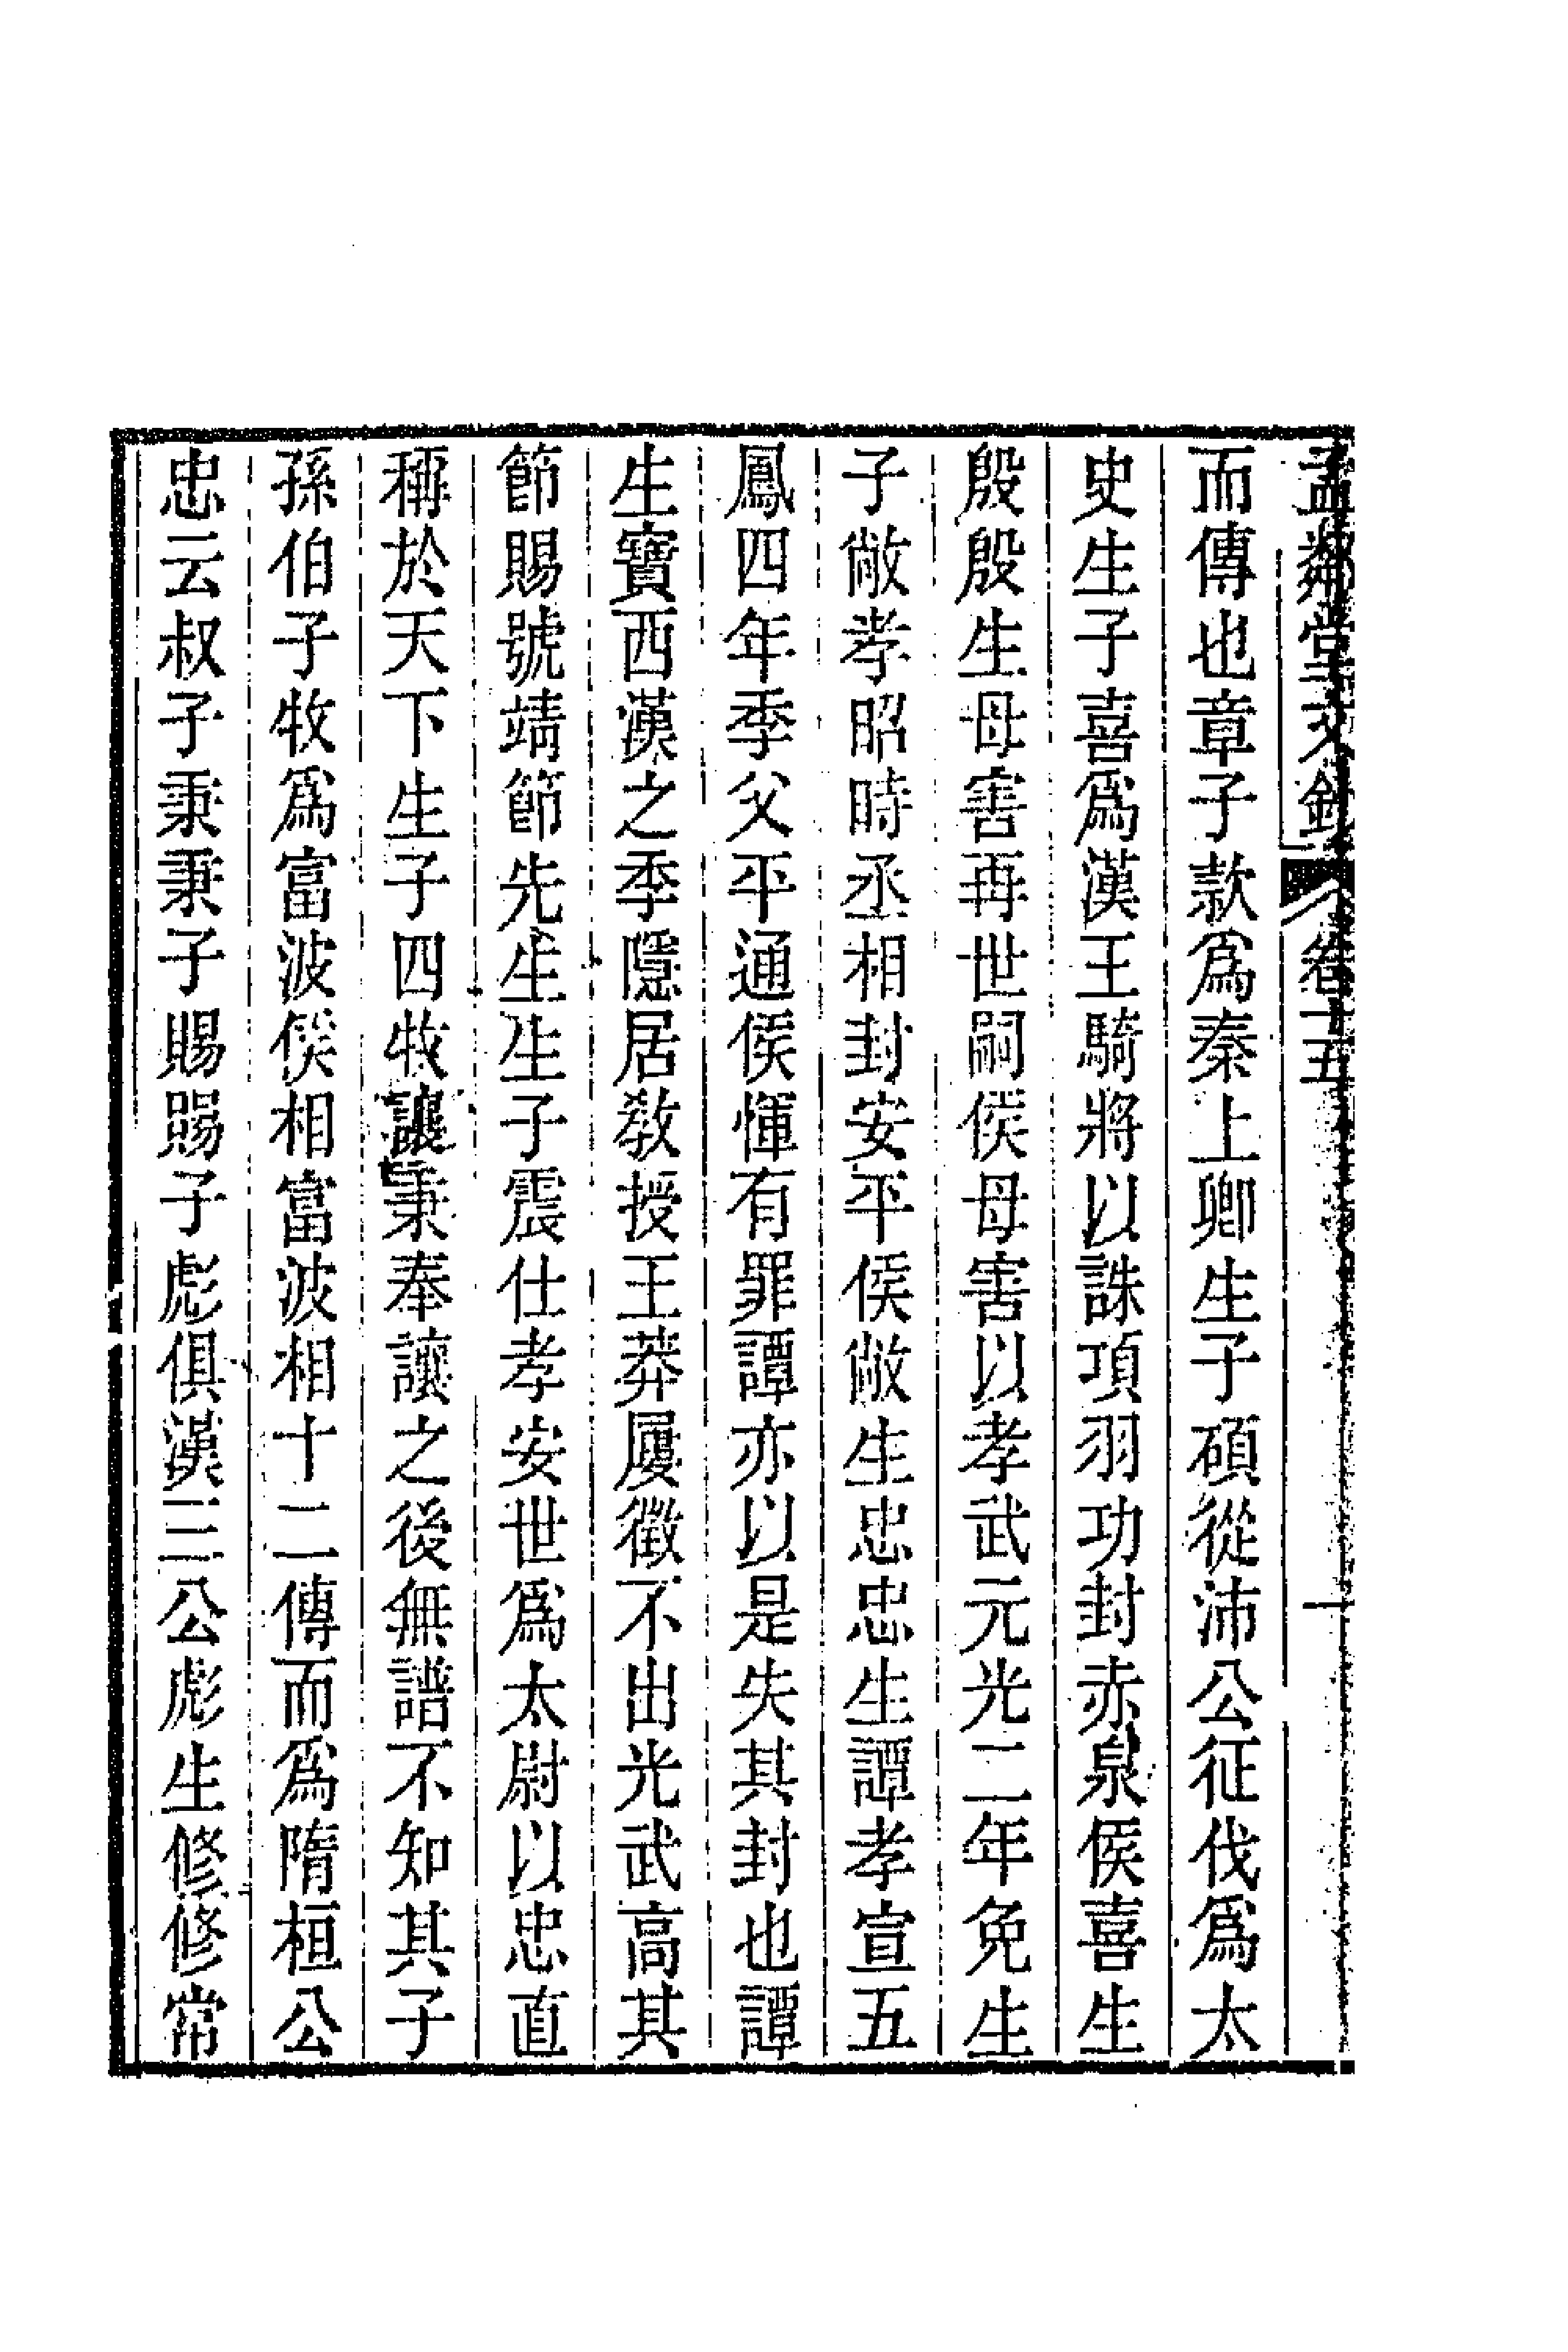 孟鄰堂文鈔 卷十五 一
而傳也章子款爲秦上卿生子碩從沛公征伐爲太
史生子喜爲漢王騎將以誅項羽功封赤泉侯喜生
殷殷生母害再世嗣侯母害以孝武元光二年免生
子敞孝昭時丞相封安平侯敞生忠忠生譚孝宣五
鳳四年季父平通侯惲有罪譚亦以是失其封也譚
生寶西漢之季隱居敎授王莽屢徵不出光武高其
節賜號靖節先生生子震仕孝安世爲太尉以忠直
稱於天下生子四牧讓秉奉讓之後無譜不知其子
孫伯子牧爲富波侯相富波相十二傳而爲隋桓公
忠云叔子秉秉子賜賜子彪俱漢三公彪生修修常